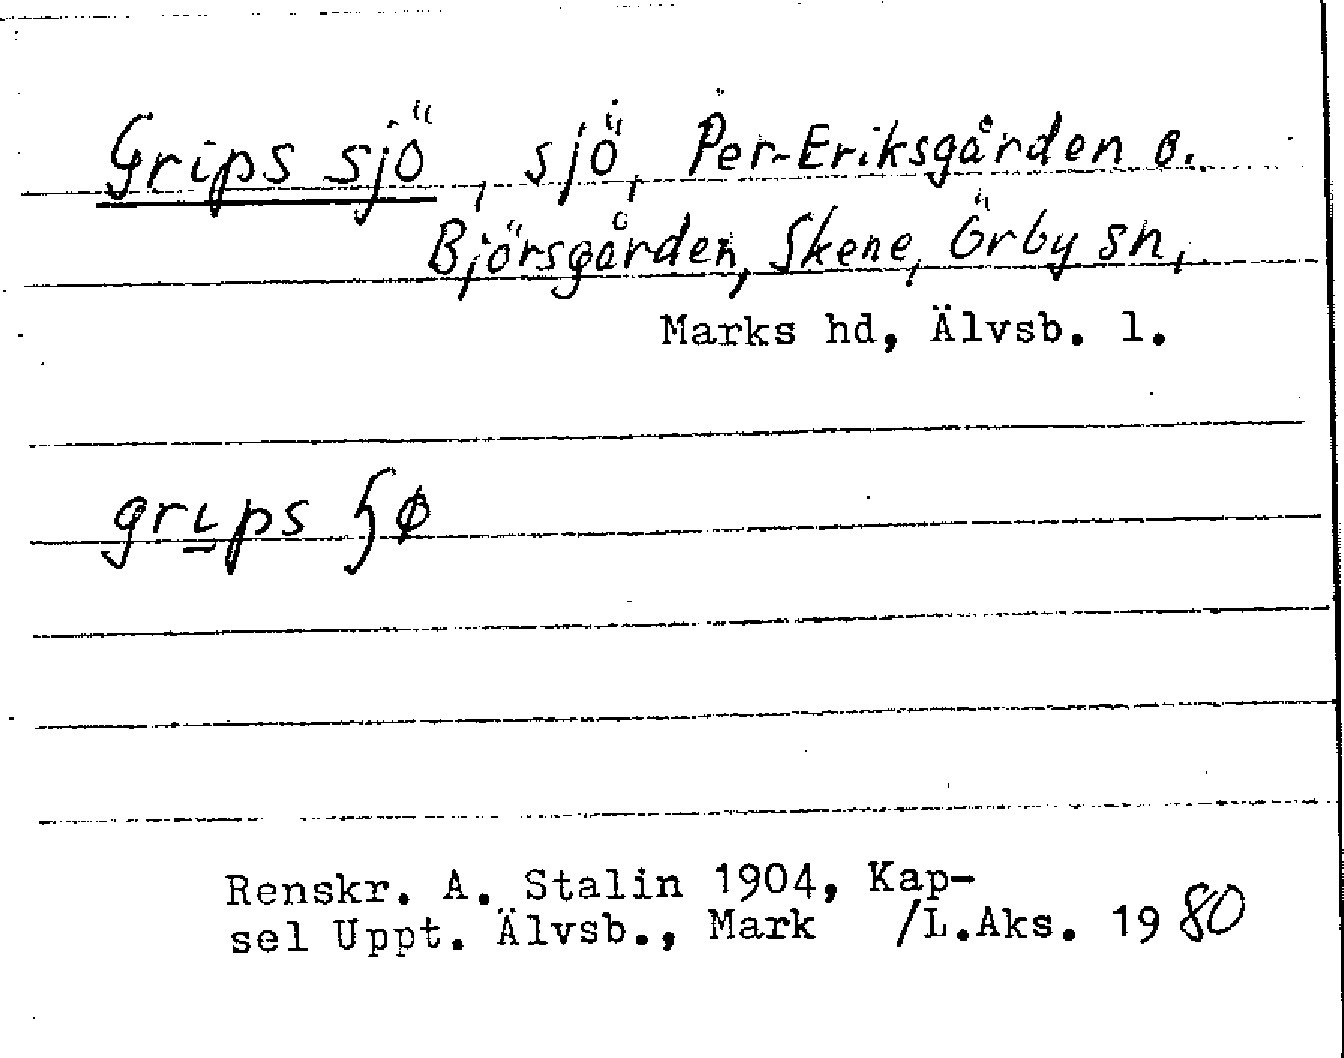 Grips sjö, sjö, Per-Eriksgården o.
Björsgården, Skene, Örby sn,
Marks hd, Älvsb. l.
Renskr. A. Stalin 1904, Kap-
sel Uppt. Älvsb., Mark /L.Aks. 1980